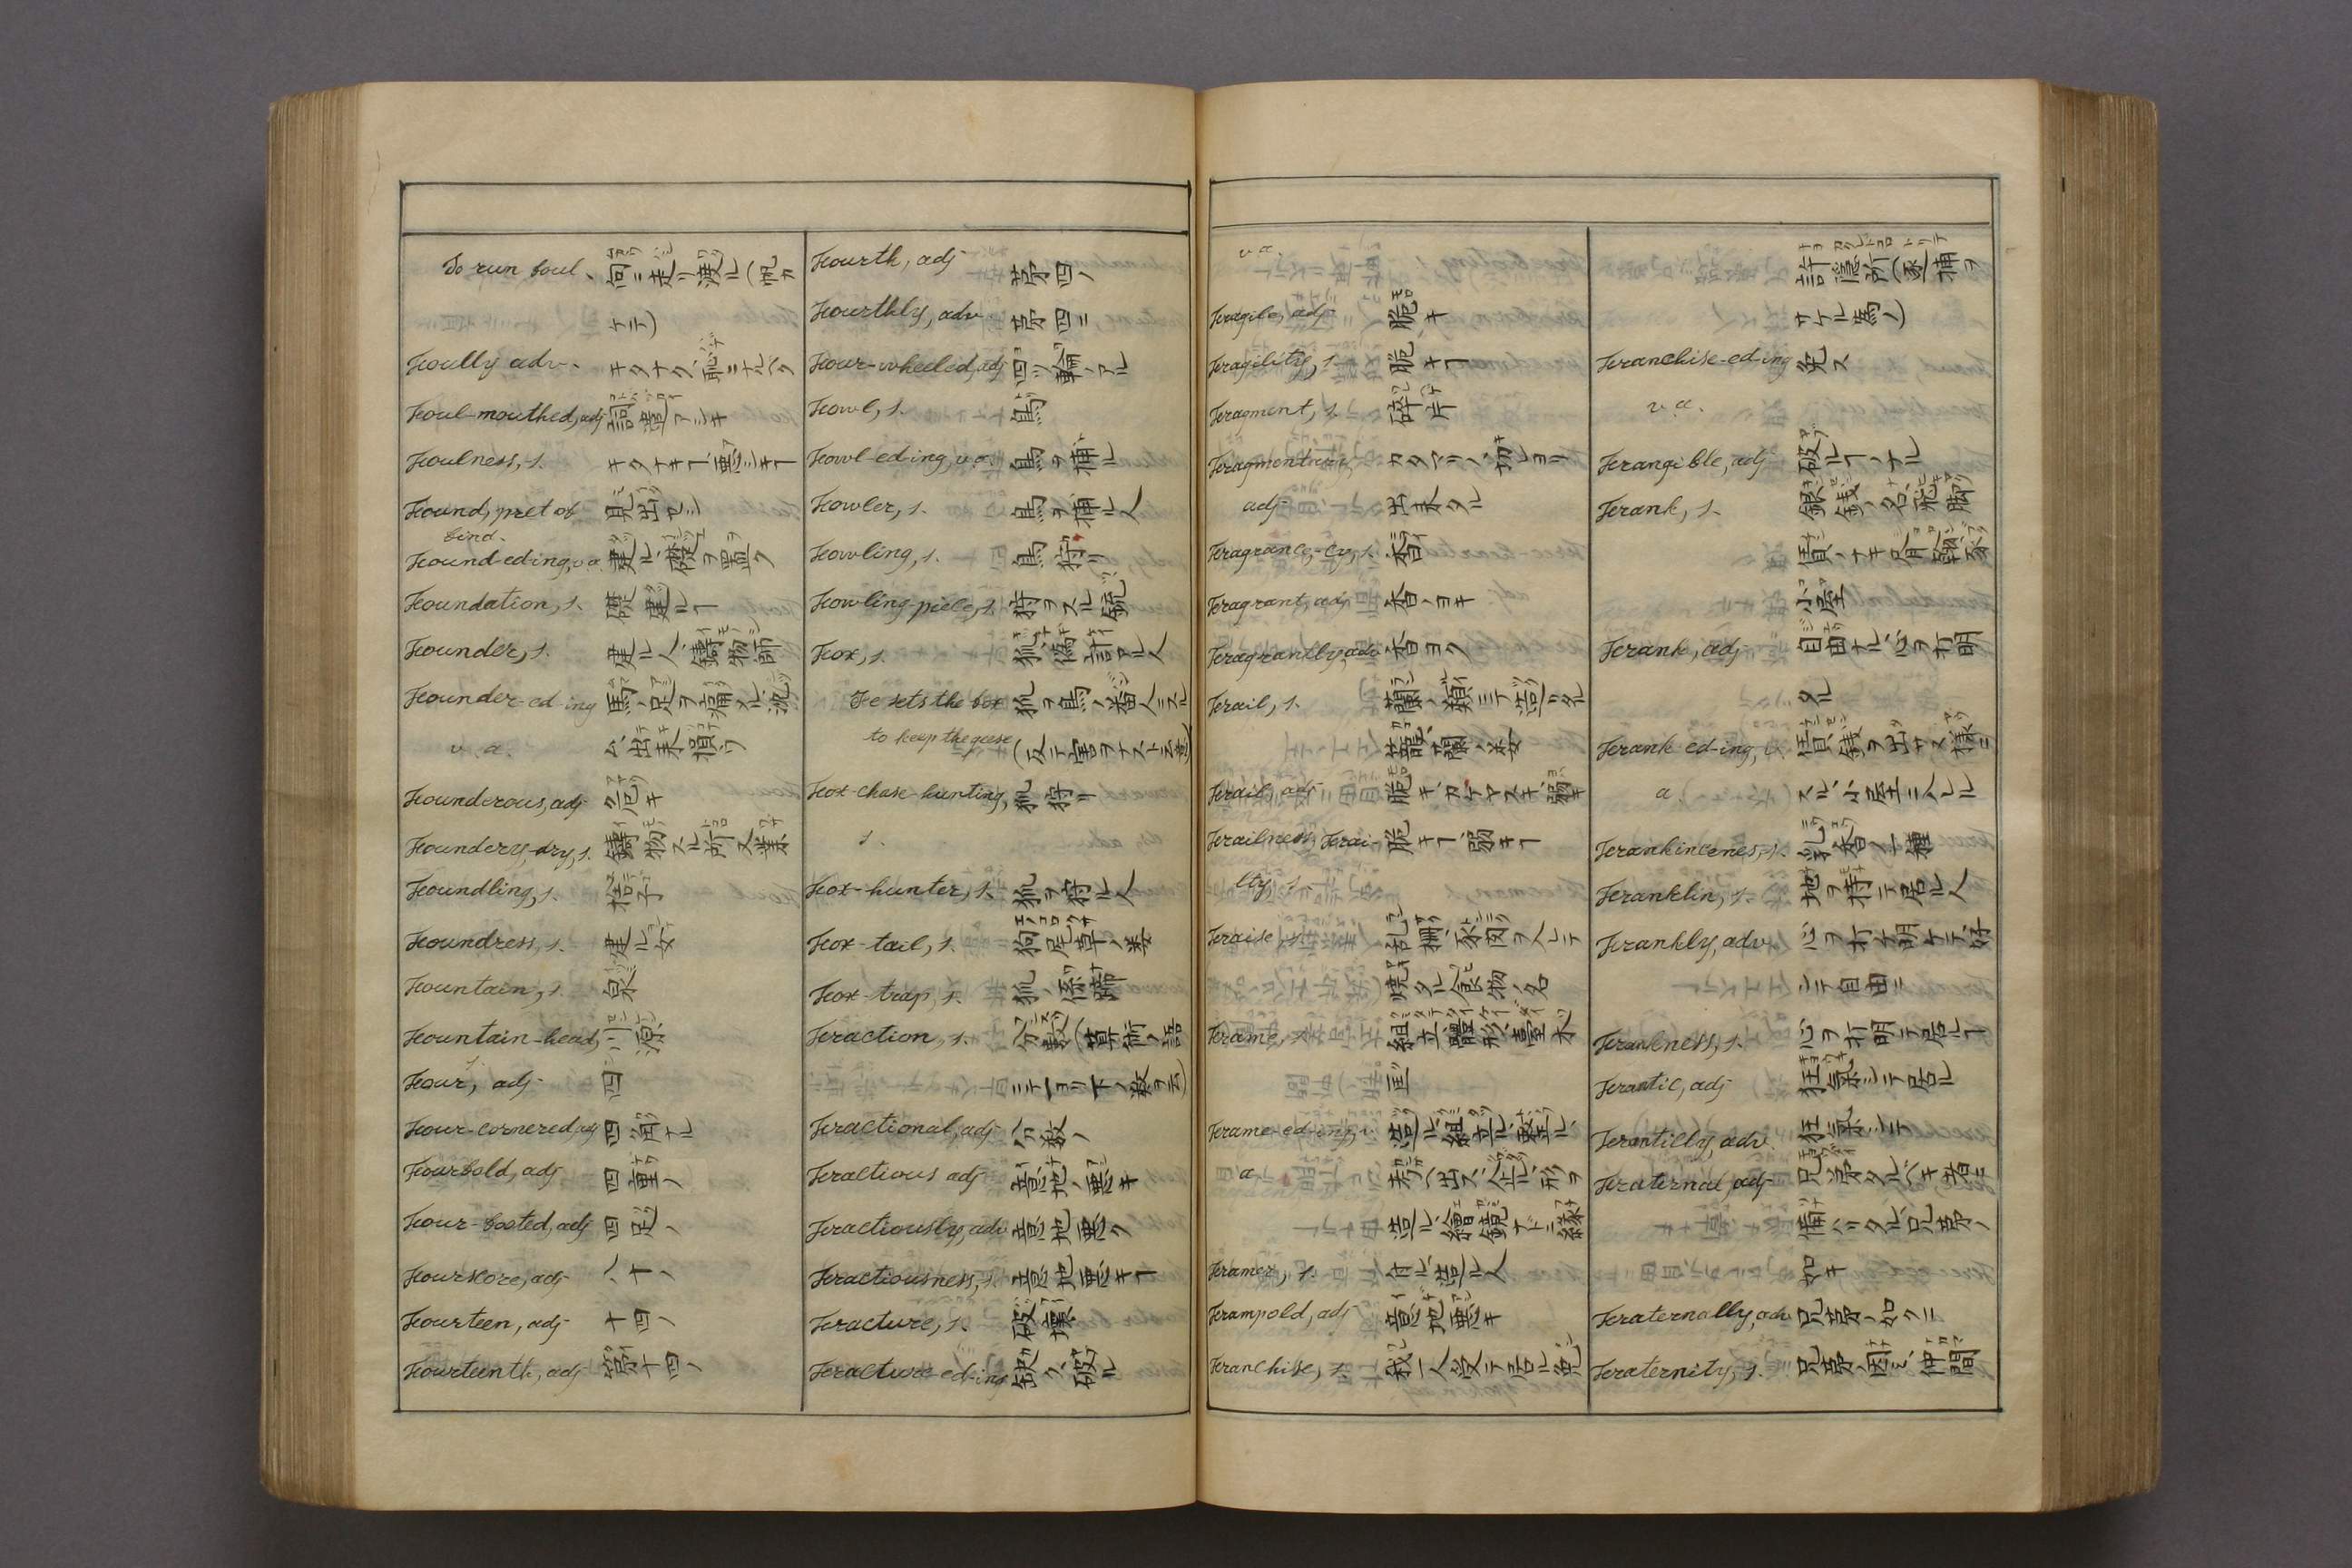 To run foul, 向ニ走リ渡ル(帆カ
ケテ)
Foully adv. キタナク、恥ニナルベク
Foul-mouthed, adj 詞遣アシキ
Foulness, s. キタナキ丁、悪シキ丁
Found, pret of 見出セシ
find.
Found-ed-ing, v.a. 建ル、礎ヲ置ク
Foundation, s. 礎、建ル丁
Founder, s. 建ル人、鋳物師
Founder-ed-ing 馬ノ足ヲ痛メル、沈
v. a. ム、出来損フ
Founderous, adj 危キ
Foundery-dry, s. 鋳物スル所、又業
Foundling, s. 捨子
Foundress, s. 建ル女
Fountain, s. 泉
Fountain-head, 川源
s.
Four, adj 四
Four-cornered, adj 四角ナル
Fourfold, adj 四重ノ
Four-footed, adj 四足ノ
Fourscore, adj 八十ノ
Fourteen, adj 十四ノ
Fourteenth, adj 第十四ノ
Fourth, adj 第四ノ
Fourthly, adv 第四ニ
Four-wheeled, adj 四ツ輪ノアル
Fowl, s. 鳥
Fowl-ed-ing, v.a. 鳥ヲ捕ル
Fowler, s. 鳥ヲ捕ル人
Fowling, s. 鳥狩リ
Fowling-piece, s. 狩ヲスル銃
Fox, s. 狐、偽計アル人
Fe sets the fox 狐ヲ鳥ノ番人ニスル
to keep the geese (反テ害ヲナスト云意)
Fox-chase-hunting, 狐狩リ
s.
Fox-hunter, s. 狐ヲ狩ル人
Fox-tail, s. 狗尾草ノ類
Fox-trap, s. 狐ノ係蹄
Fraction, s. 分数(算術ノ語
ニテ一ヨリ下ノ数ヲ云)
Fractional, adj 分数ノ
Fractious adj 意地ノ悪キ
Fractiously, adv 意地悪ク
Fractiousness, s. 意地悪キ丁
Fracture, s. 破壊
Fracture-ed-ing 缺ク、破ル
v a.
Fragile, adj 脆キ
Fragility, s. 脆キ丁
Fragment, s. 砕片
Fragmentary, カタマリノ、切レヨリ
adj 出来タル
Fragrance,-cy, s. 香
Fragrant, adj 香ノヨキ
Fragrantly, adv 香ヨク
Frail, s. 藺ノ類ニテ造リタル
籠、藺ノ類
Frail, adj 脆キ、カケヤスキ、弱キ
Frailness, Frai- 脆キ丁、弱キ丁
lty, s.
Fraise, s. 乱掤、豕肉ヲ入レテ
焼タル食物ノ名
Frame, s. 組立、體形、臺木
匡
Frame-ed-ing, v. 造ル、組立ル、整ル、
a 考ヘ出ス、企ル、形ヲ
造ル、繪鏡ナドニ縁
Framer, s. 作ル、造ル人
Frampold, adj 意地悪キ
Franchise, s. 我一人受テ居ル免
許、隠所(逐捕ヲ
サケル為ノ)
Franchise-ed-ing 免ス
v. a.
Frangible, adj 破ル丁ノナル
Frank, s. 銀銭ノ名、飛脚
賃ノナキ尺牘、豕
小屋
Frank, adj 自由ナル、心ヲ打明
タル
Frank ed-ing, v. 賃銭ヲ出サヌ様ニ
a スル、小屋ニ入レル
Frankincenes, s. 乳香ノ一種
Franklin, s. 地ヲ持テ居ル人
Frankly, adv 心ヲ打チ明ケテ、好
シテ、自由ニ
Frankness, s. 心ヲ打明テ居ル丁
Frantic, adj 狂氣シテ居ル
Franticly, adv 狂氣シテ
Fraternal, adj 兄弟タルベキ者ニ
備ハリタル、兄弟ノ
如キ
Fraternally, adv 兄弟ノ如クニ
Fraternity, s. 兄弟ノ因ミ、仲間